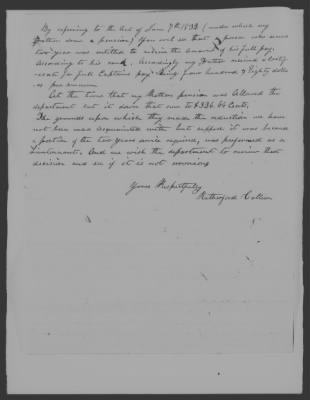 By refering to the Act of June 7th 1832 (under which my
Father drew a pension) You will see that a person who served
two year was entitled to receive the amount of his full pay.
According to his rank. Accordingly my Father received a Certif-
icate for full Captains pay being four hundred & Eighty dollar
s per annum
At the time that my Mothers pension was allowed the
department cut it down that one to $336.64 Cents.
The grounds upon which they made the reduction we have
not been made acquainted with but suppose it was because
a portion of the two years service required, was preformed as a
Lieutenant. And we wish the department to review their
decision and see if it is not wrong
Yours Respectfully
Rutherford Collien